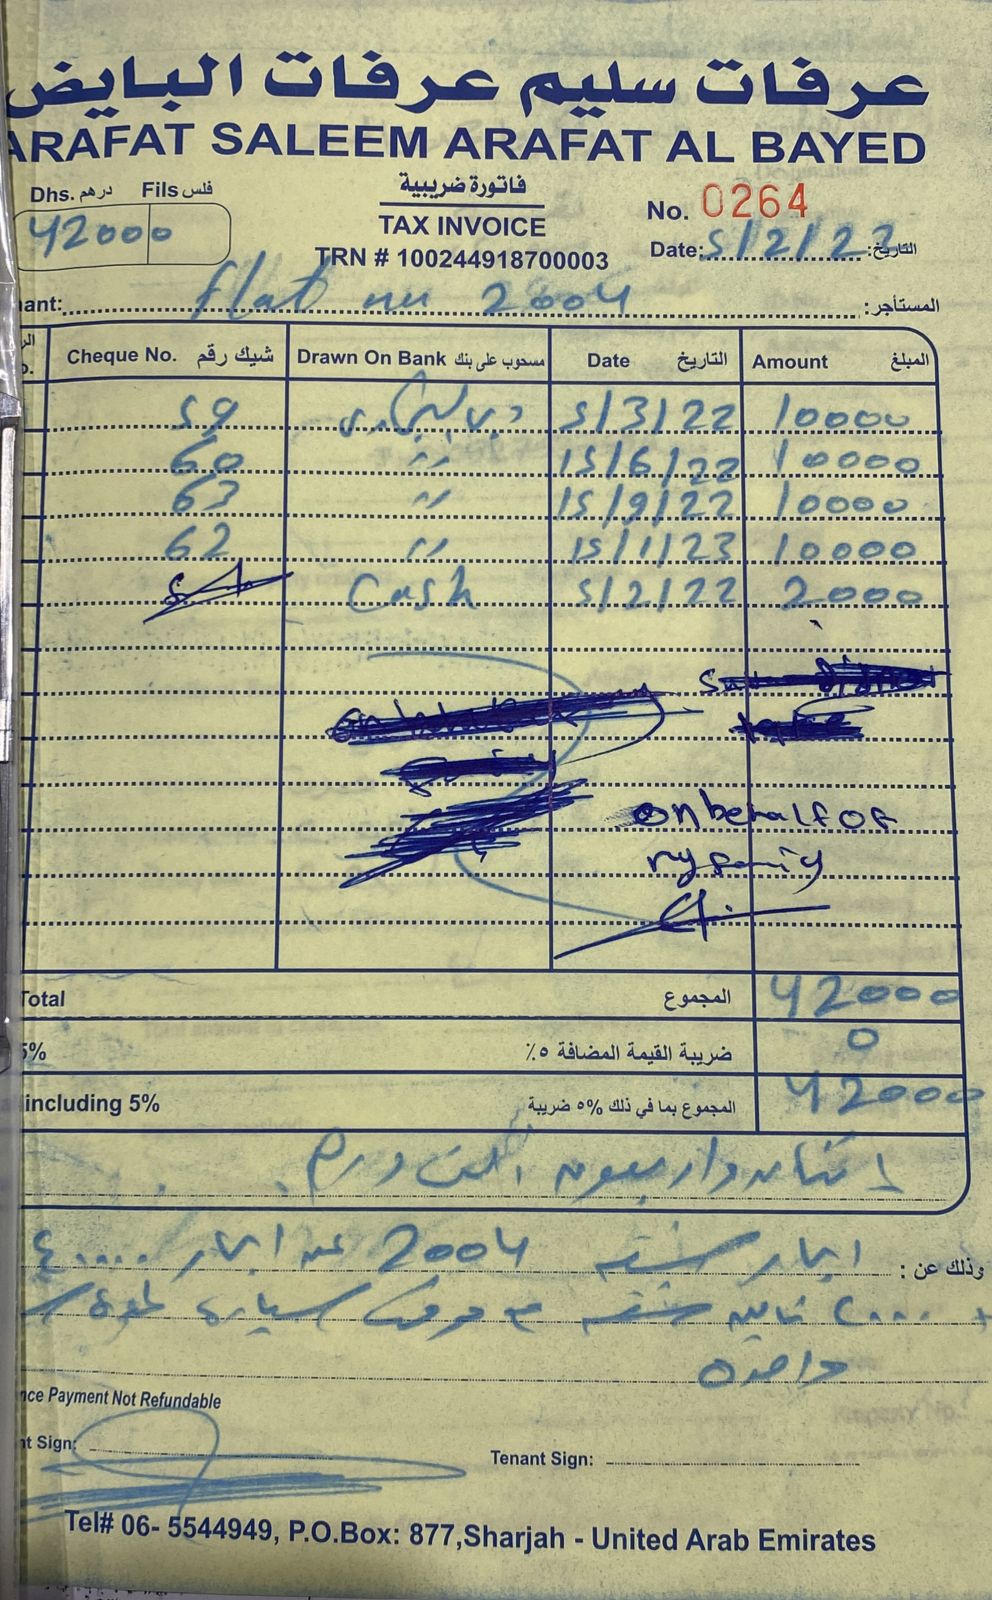 عرفات سليم عرفات البايض
ARAFAT SALEEM ARAFAT AL BAYED
Dhs. درهم Fils فلس
42000
فاتورة ضريبية
TAX INVOICE
TRN # 100244918700003
No. 0264
Date: 5/2/22 التاريخ:
ant: flat nu 2004 المستأجر:
Cheque No. شيك رقم Drawn On Bank مسحوب على بنك Date التاريخ Amount المبلغ
59 5/3/22 10000
60 " 15/6/22 10000
63 " 15/9/22 10000
62 " 15/1/23 10000
Cash 5/2/22 2000
on behalf of
Total المجموع 42000
5% ضريبة القيمة المضافة ٥٪ 0
including 5% المجموع بما في ذلك ٥% ضريبة 42000
اثنان واربعون الف درهم
وذلك عن : ايجار شقه 2004 عن ايجار ٤٠٠٠٠
+ ٢٠٠٠ تامين شقه موقف سيارة لمدة
واحده
nce Payment Not Refundable
nt Sign:
Tenant Sign:
Tel# 06- 5544949, P.O.Box: 877,Sharjah - United Arab Emirates